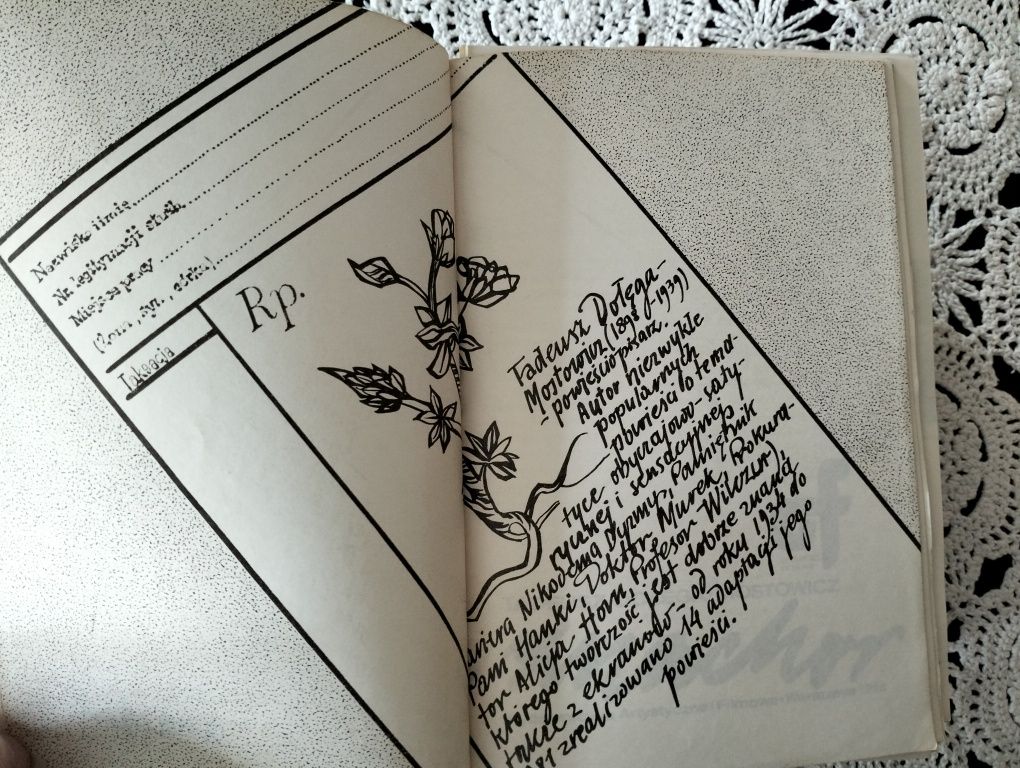 Nazwisko i imię
Nr legitymacji służb.
Miejsce pracy
(żona, syn., córka)
Taksacja
Rp.
Tadeusz Dołęga-
Mostowicz (1898-1939)
- powieściopisarz.
Autor niezwykle
popularnych
powieści o tema-
tyce obyczajowo-saty-
rycznej i sensacyjnej
Kariera Nikodema Dyzmy, Pamiętnik
Pani Hanki, Doktor Murek, Prokura-
tor Alicja Horn, Profesor Wilczur)
którego twórczość jest dobrze znana
także z ekranów - od roku 1934 do
81 zrealizowano 14 adaptacji jego
powieści.
OSTOWICZ